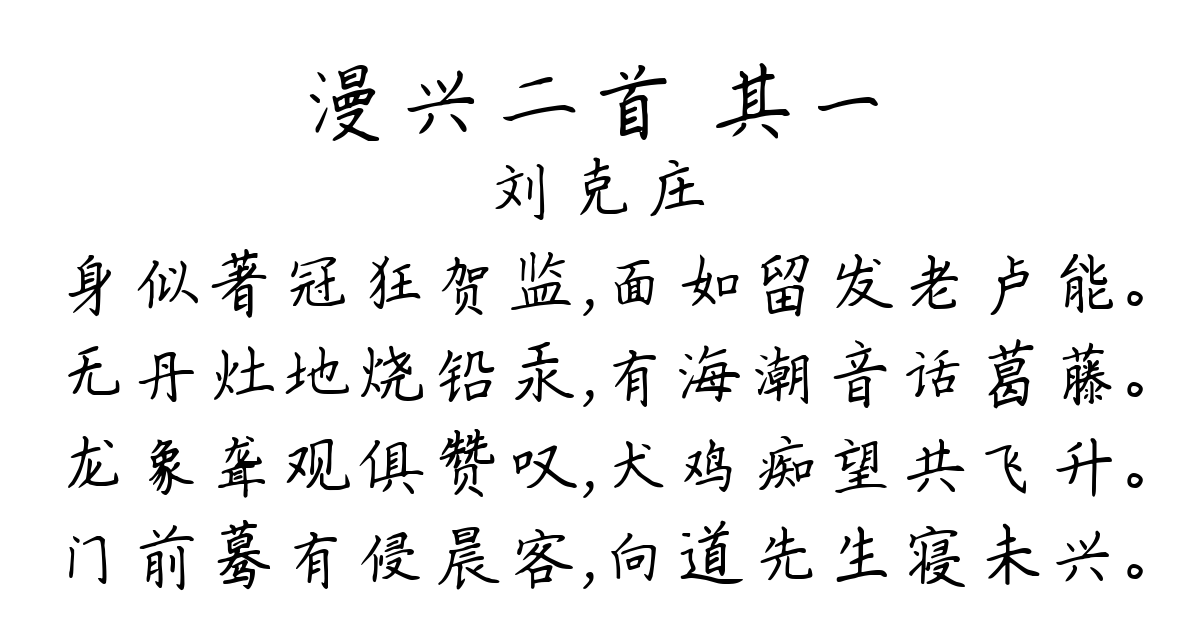 漫兴二首 其一
刘克庄
身似著冠狂贺监,面如留发老卢能。
无丹灶地烧铅汞,有海潮音话葛藤。
龙象聋观俱赞叹,犬鸡痴望共飞升。
门前蓦有侵晨客,向道先生寝未兴。